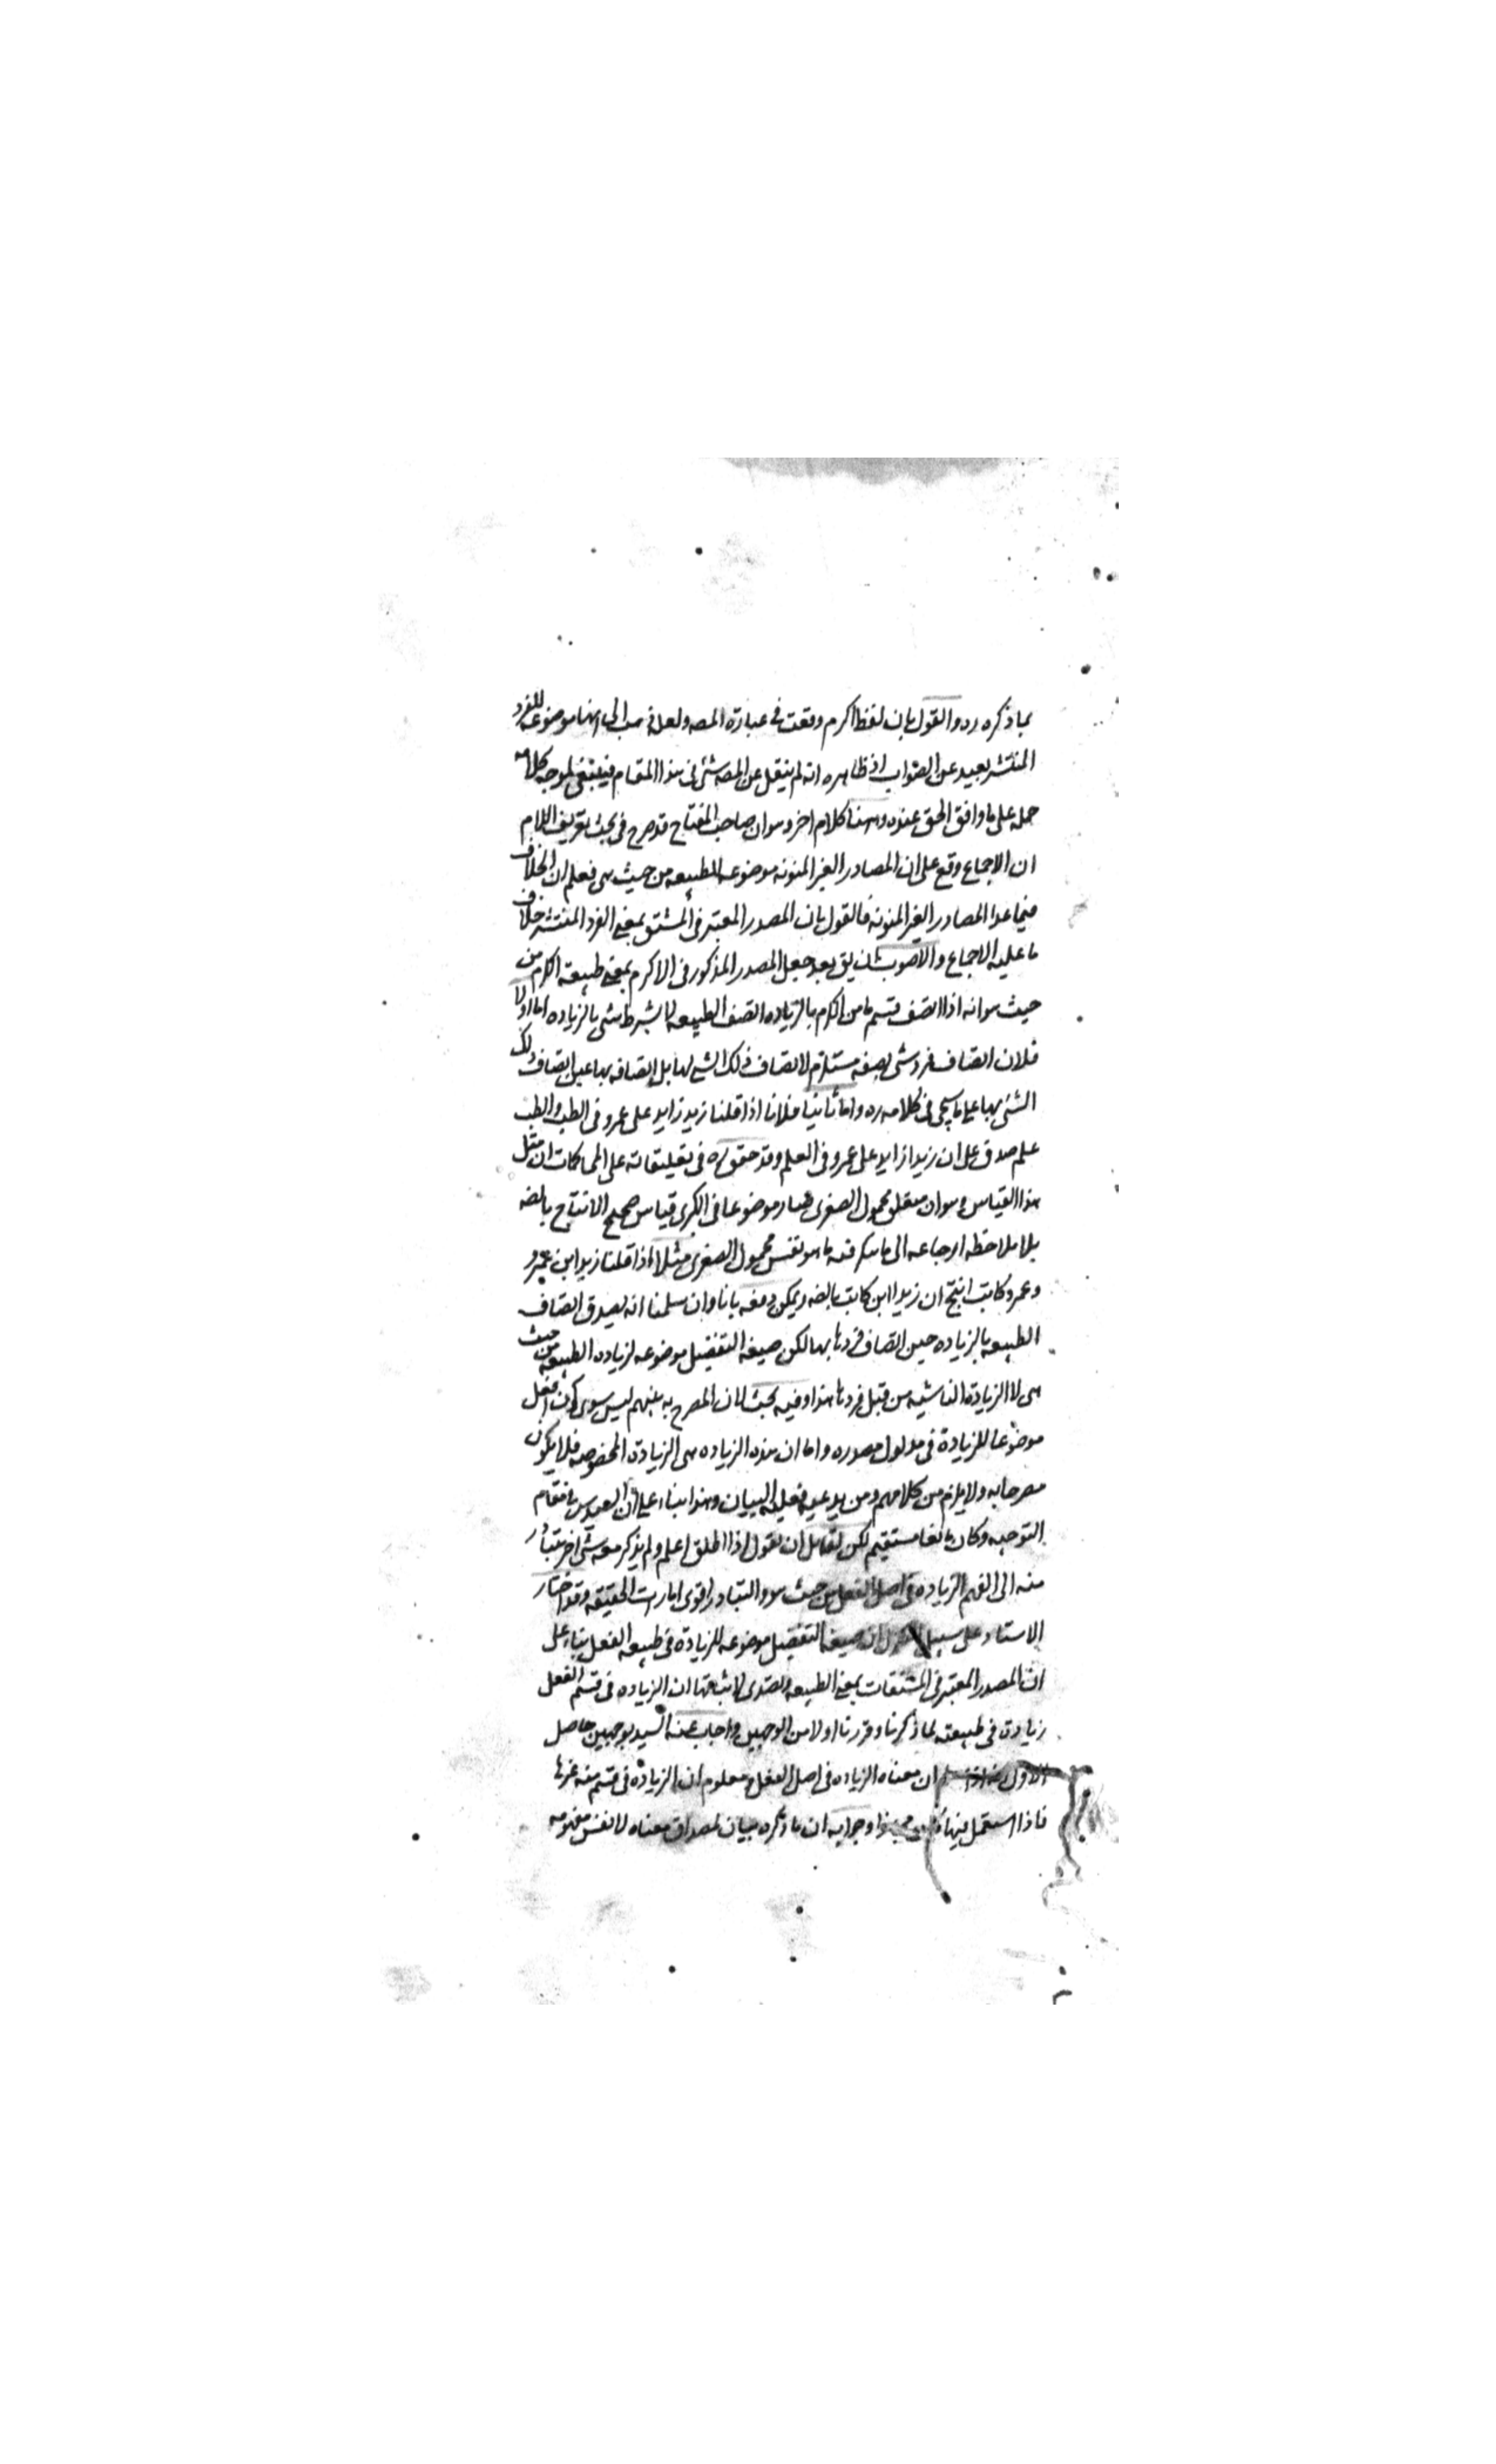 بما ذكره ره والقول بان لفظ اكرم وقعت في عبارة المصه ولعله ذهب الى انها موضوعه للفرد
المنتشر بعيد عن الصواب اذ ظاهره انه لم ينقل عن المصه شئ في هذا المقام فينبغي لموجه كلامه
حمله على ما وافق الحق عنده وههنا كلام اخر وهو ان صاحب المفتاح قد صرح في بحث تعريف اللام
ان الاجماع وقع على ان المصادر الغير المنونه موضوعه للطبيعه من حيث هي فعلم ان الخلاف
فيما عدا المصادر الغير المنونه فالقول بان المصدر المعتبر في المشتق بمعنى الفرد المنتشر خلاف
ما عليه الاجماع والاصوب ان يق بعد جعل المصدر المذكور في الاكرم بمعنى طبيعة الكرم من
حيث هو انه اذا اتصف قسم ما من الكرم بالزياده اتصف الطبيعه لا بشرط شئ بالزياده اما اولا
فلان اتصاف فرد شئ بصفه مستلزم لاتصاف ذلك الشئ لها بل اتصافه بها عين اتصاف ذلك
الشئ بها على ما يجئ في كلامه ره واما ثانيا فلانا اذا قلنا زيد زايد على عمرو في الطب والطب
علم صدق على ان زيدا زايد على عمرو في العلم وقد حقق ره في تعليقاته على المحاكمات ان مثل
هذا القياس وهو ان متعلق محمول الصغرى صار موضوعا في الكبرى قياس صحيح الانتاج بالضه
بلا ملاحظه ارجاعه الى ما يتكرر فيه ما هو نفس محمول الصغرى مثلا اذا قلنا زيد ابن عمرو
وعمرو كاتب انتج ان زيدا ابن كاتب بالضه ويمكن دفعه بانا وان سلمنا انه يصدق اتصاف
الطبيعه بالزياده حين اتصاف فردها بها لكن صيغه التفضيل موضوعه لزياده الطبيعه من حيث
هي لا الزيادة الناشيه من قبل فردها هذا وفيه بحث لان المصرح به بينهم ليس سوى كون افعل
موضوعا للزيادة في مدلول مصدره واما ان هذه الزياده هي الزيادة المخصوصه فلا يكون
مصرحا به ولا يلزم من كلامهم ومن يدعيه فعليه البيان وهذا بناء على ان السيد س في مقام
التوجيه وكان مانعا مستقيم لكن لقايل ان يقول اذا اطلق اعلم ولم يذكر معه شئ اخر يتبادر
منه الى الفهم الزياده في اصل الفعل من حيث هو والتبادر اقوى امارات الحقيقه وقد اختار
الاستاد على سبيل ان صيغه التفضيل موضوعه للزيادة في طبيعه الفعل بناء على
ان المصدر المعتبر في المشتقات بمعنى الطبيعه وتصدى لاثباتها ان الزياده في قسم الفعل
زيادة في طبيعته لما ذكرنا وقررنا اولا من الوجهين واجاب عنه السيد بوجهين حاصل
الاول ان معناه الزياده في اصل الفعل ومعلوم ان الزيادة في قسم منه غيرها
فاذا استعمل فيها وجوابه ان ما ذكره بيان لمصداق معناه لا نفس مفهومه